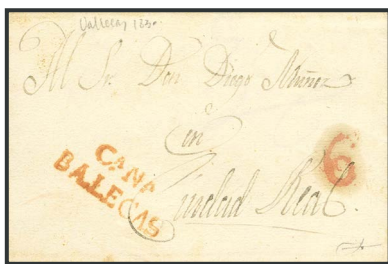 Vallecas 183
Al Sr. Don Diego Muñoz
en
6
CANA
BALECAS
Ciudad Real.